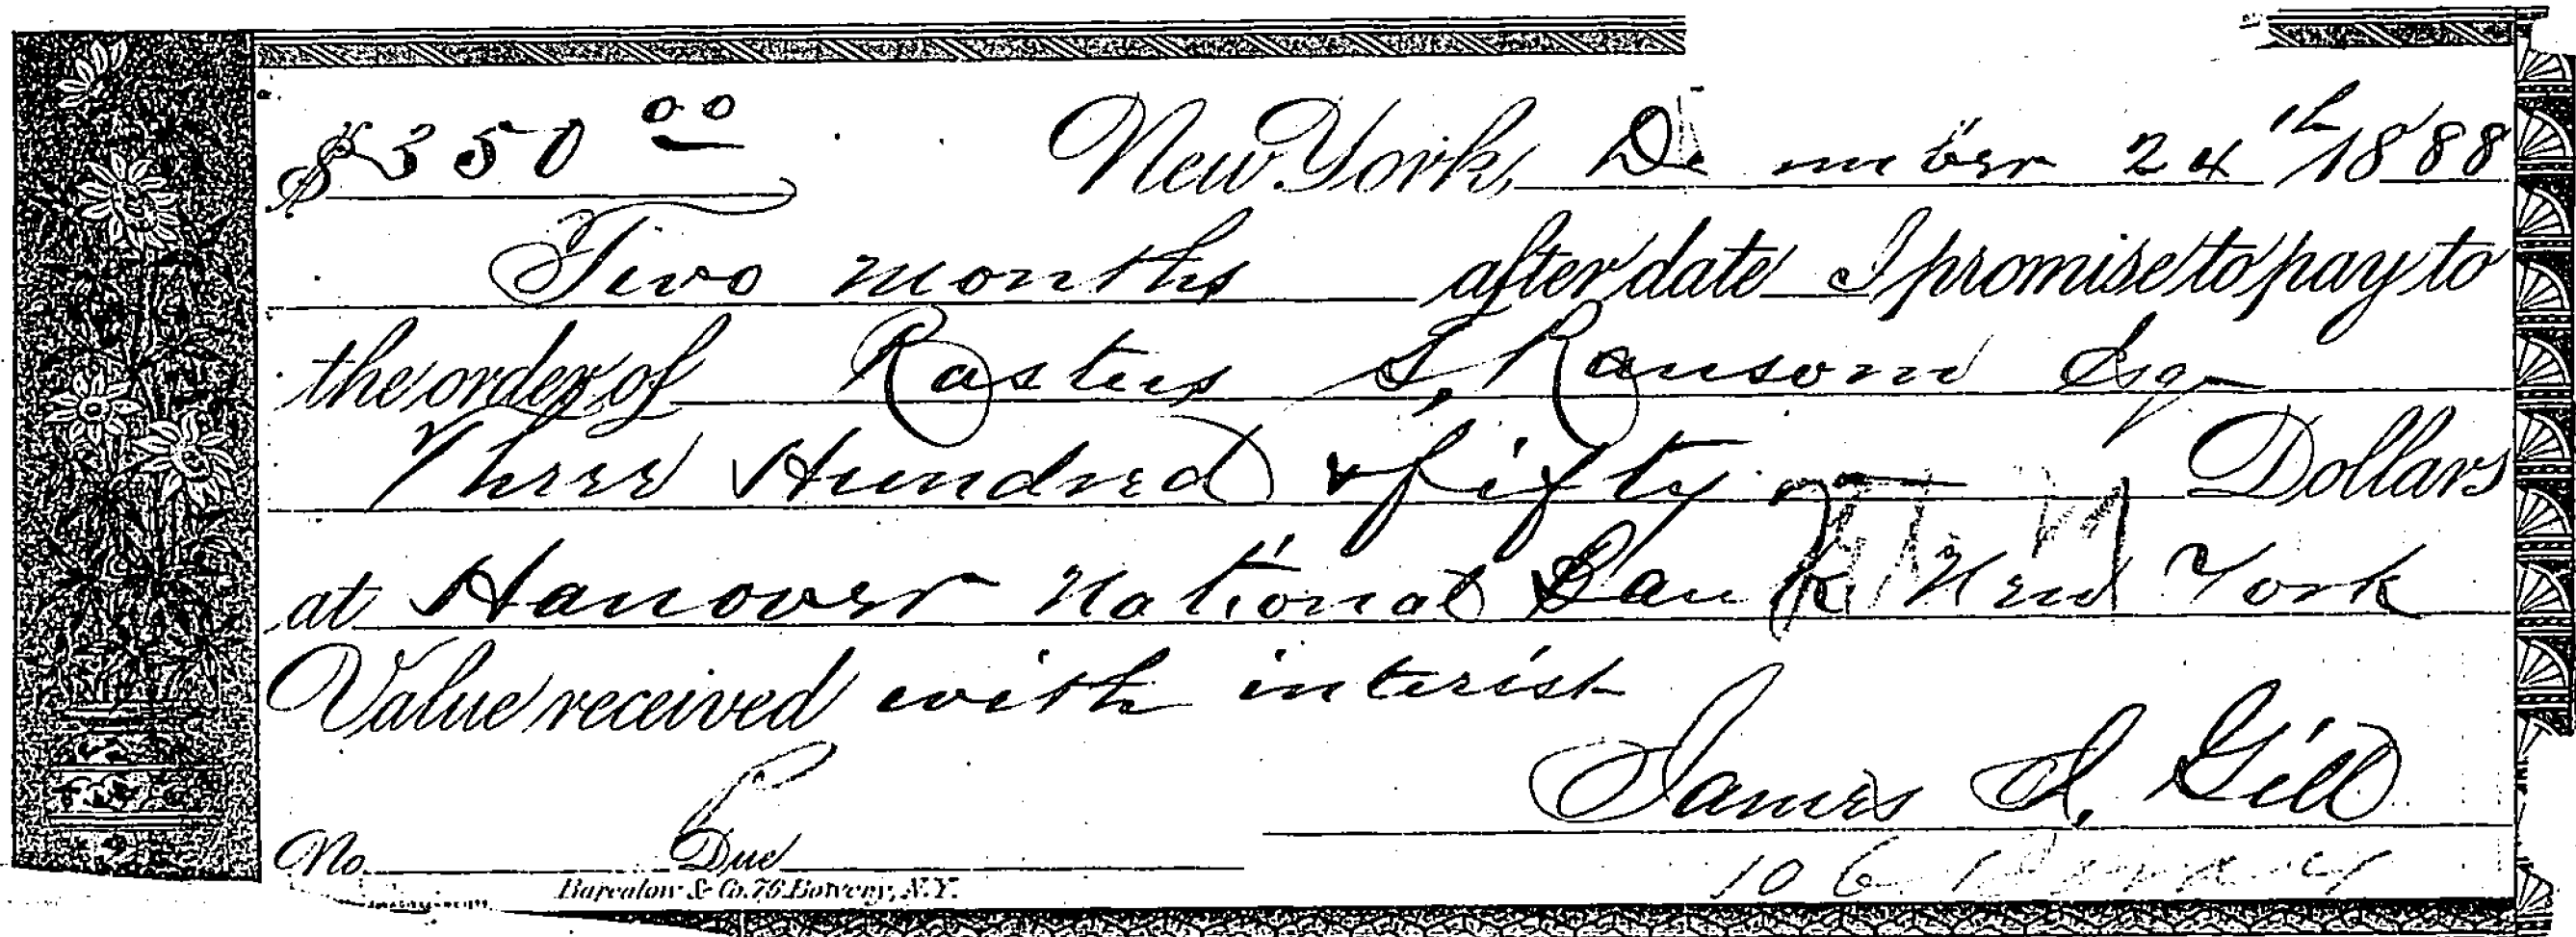 $350 00 New York, De mber 24th 1888
Two months after date I promise to pay to
the order of Rastus S. Ransom Esq
Three Hundred & fifty Dollars
at Hanover National Bank New York
Value received with interest
James S. Gill
No. Due
106
Barcalow & Co. 76 Bowery, N.Y.